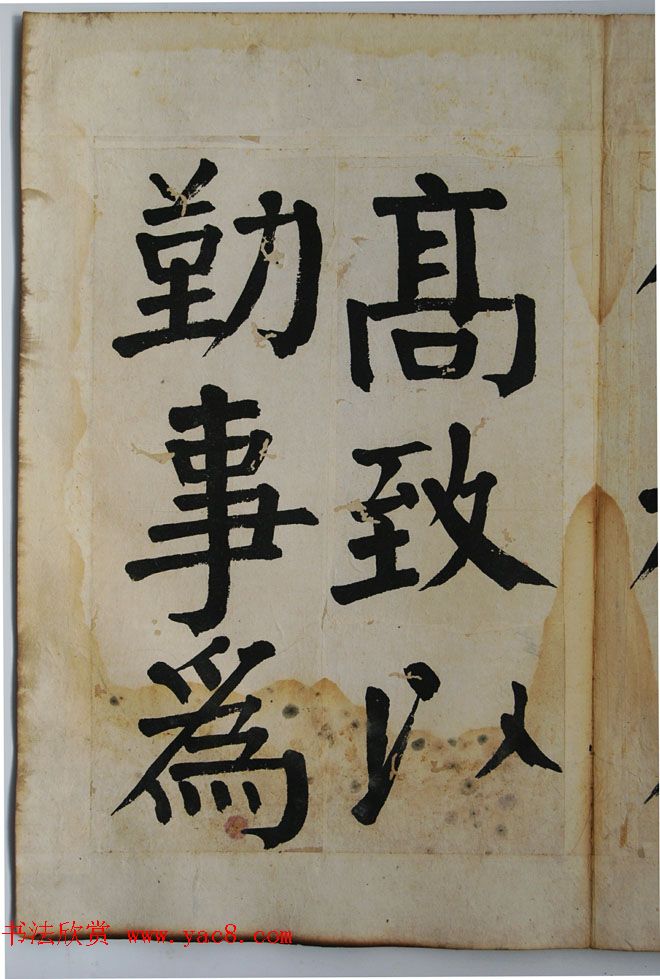 髙致以
勤事為
书法欣赏 www.yac8.com